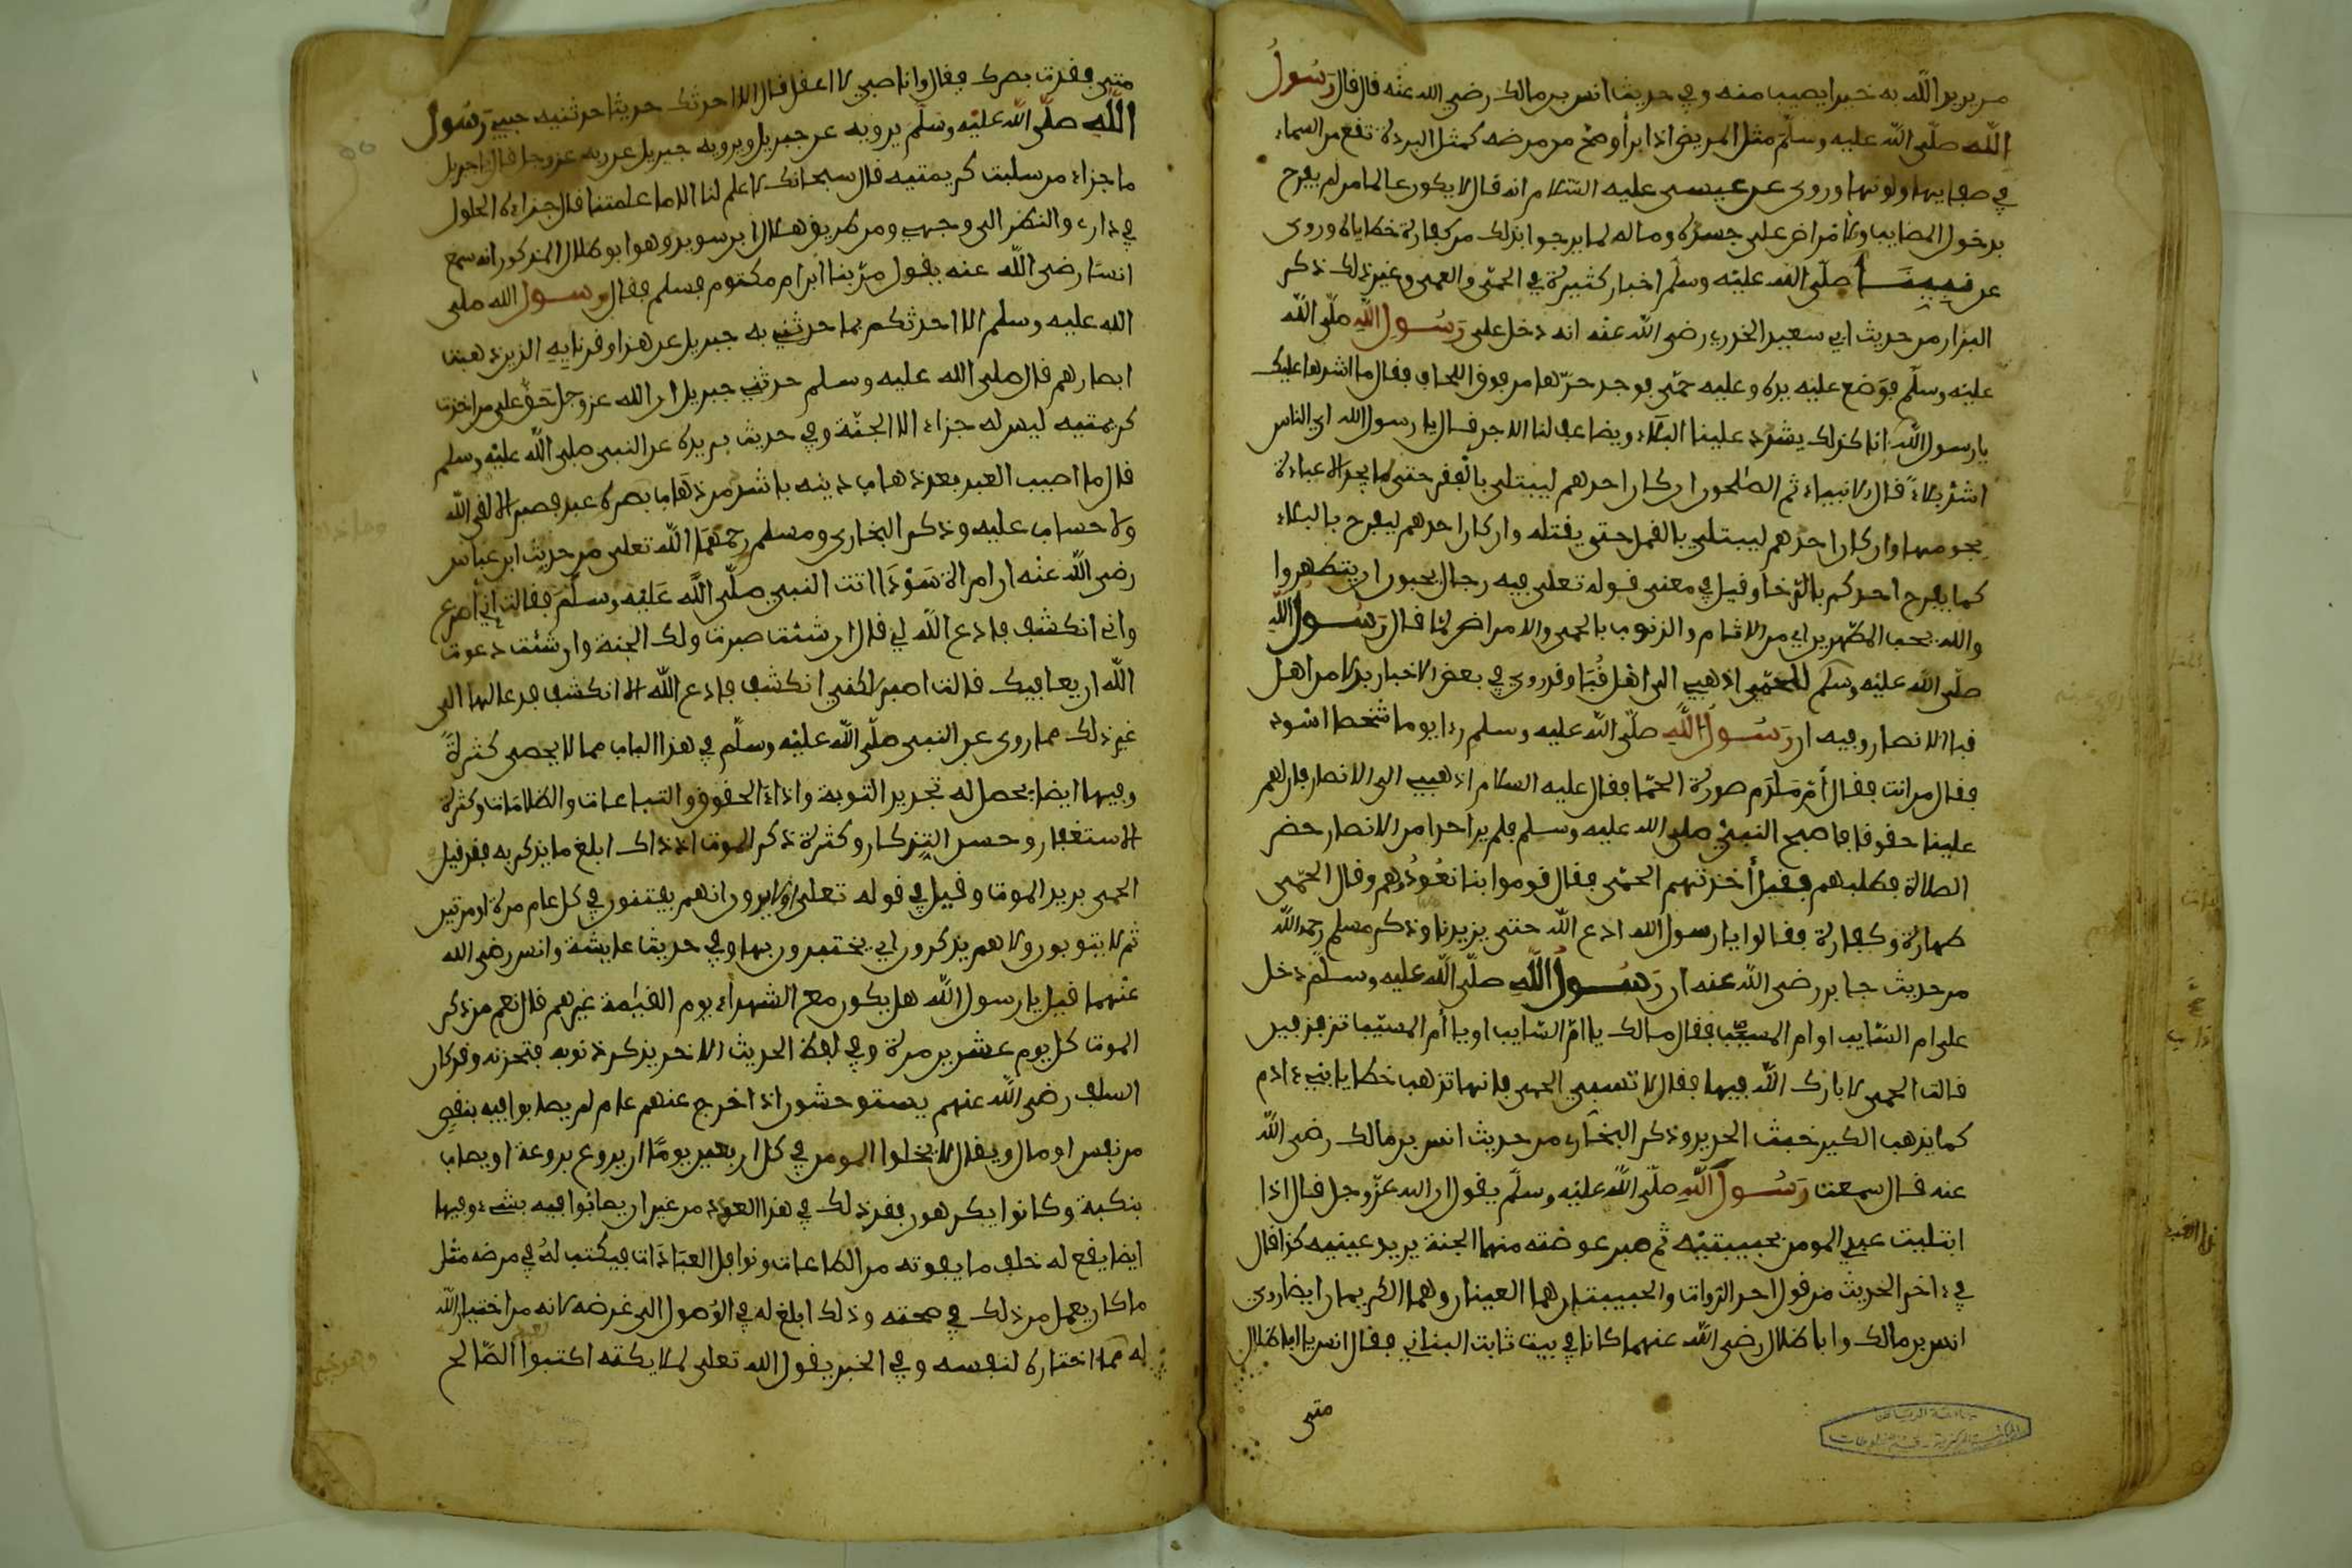 من يريد الله به خيرا يصيب منه وفي حديث انس بن مالك رضي الله عنه قال قال رسول
الله صلى الله عليه وسلم مثل المريض اذا برأ وصح من مرضه كمثل البردة تقع من السماء
في صفايها ولونها وروى عن عيسى عليه السلام انه قال لا يكون عالما من لم يفرح
بدخول المصايب والامراض على جسده وماله لما يرجوا بذلك من كفارة خطاياه وروى
عن نبينا صلى الله عليه وسلم اخبار كثيرة في الحمى والعمى وغير ذلك ذكر
البزار من حديث ابي سعيد الخدري رضي الله عنه انه دخل على رسول الله صلى الله
عليه وسلم فوضع عليه يده وعليه حمى فوجد حرها من فوق اللحاف فقال ما اشدها عليك
يا رسول الله انا كذلك يشدد علينا البلاء ويضاعف لنا الاجر قال يا رسول الله اي الناس
اشد بلاء قال الانبياء ثم الصلحون ان كان احدهم ليبتلى بالفقر حتى ما يجد الا عباءة
يحويها وان كان احدهم ليبتلى بالقمل حتى يقتله وان كان احدهم ليفرح بالبلاء
كما يفرح احدكم بالرخا وقيل في معنى قوله تعلى فيه رجال يحبون ان يتطهروا
والله يحب المطهرين اي من الاثام والذنوب بالحمى والامراض لما قال رسول الله
صلى الله عليه وسلم للحمى اذهبي الى اهل قبا وقد روى في بعض الاخبار بدلا من اهل
قبا الانصار وفيه ان رسول الله صلى الله عليه وسلم رءا يوما شخصا اسود
فقال من انت فقال أم ملدم صورة الحما فقال عليه السلام اذهبي الى الانصار فان لهم
علينا حقوقا فاصبح النبي صلى الله عليه وسلم فلم ير احدا من الانصار حضر
الصلاة فطلبهم فقيل أخذتهم الحمى فقال قوموا بنا نعودهم وقال الحمى
طهارة وكفارة فقالوا يا رسول الله ادع الله حتى يزيدنا وذكر مسلم رحمه الله
من حديث جابر رضي الله عنه ان رسول الله صلى الله عليه وسلم دخل
على ام السايب او ام المسيب فقال مالك يا ام السايب او يا أم المسيب تزفزفين
قالت الحمى لا بارك الله فيها فقال لا تسبي الحمى فانها تذهب خطايا بني ءادم
كما يذهب الكير خبث الحديد وذكر البخاري من حديث انس بن مالك رضي الله
عنه قال سمعت رسول الله صلى الله عليه وسلم يقول ان الله عز وجل قال اذا
ابتليت عبدي المومن بحبيبتيه ثم صبر عوضته منهما الجنة يريد عينيه كذا قال
في ءاخر الحديث من قول احد الروات والحبيبتان هما العينان وهما الكريمان ايضا روى
انس بن مالك وابا ظلال رضي الله عنهما كانا في بيت ثابت البناني فقال انس يا ابا ظلال
متى
متى فقدت بصرك فقال وانا صبي لا اعقل قال الا احدثك حديثا حدثنيه حبيبي رسول
الله صلى الله عليه وسلم يرويه عن جبريل ويرويه جبريل عن ربه عز وجل قال يا جبريل
ما جزاء من سلبت كريمتيه قال سبحانك لا علم لنا الا ما علمتنا قال جزاءه الحلول
في داري والنظر الى وجهي ومن طريق هلال ابن سويد وهو ابو ظلال المذكور انه سمع
انسا رضي الله عنه يقول مر بنا ابن ام مكتوم فسلم فقال رسول الله صلى
الله عليه وسلم الا احدثكم بما حدثني به جبريل عن هذا وقرنايه الذين ذهبت
ابصارهم قال صلى الله عليه وسلم حدثني جبريل ان الله عز وجل حق على من اخذت
كريمتيه ليس له جزاء الا الجنة وفي حديث بريدة عن النبي صلى الله عليه وسلم
قال ما اصيب العبد بعد ذهاب دينه باشد من ذهاب بصره عبد فصبر الا لقي الله
ولا حساب عليه وذكر البخاري ومسلم رحمهما الله تعلى من حديث ابن عباس
رضي الله عنه ان امراة سودا اتت النبي صلى الله عليه وسلم فقالت اني أصرع
واني انكشف فادع الله لي قال ان شئت صبرت ولك الجنة وان شئت دعوت
الله ان يعافيك قالت اصبر لكني انكشف فادع الله الا انكشف فدعا لها الى
غير ذلك مما روى عن النبي صلى الله عليه وسلم في هذا الباب مما لا يحصى كثرة
وفيها ايضا يحصل له تجديد التوبة واداء الحقوق والتباعات والظلامات وكثرة
الاستغفار وحسن التذكار وكثرة ذكر الموت اذ ذاك ابلغ ما يذكر به فقد قيل
الحمى بريد الموت وقيل في قوله تعلى اولا يرون انهم يفتنون في كل عام مرة او مرتين
ثم لا يتوبون ولا هم يذكرون اي يختبرون بها وفي حديث عايشة وانس رضي الله
عنهما قيل يا رسول الله هل يكون مع الشهداء يوم القيمة غيرهم قال نعم من ذكر
الموت كل يوم عشرين مرة وفي لفظ الحديث الاخر يذكر ذنوبه فتحزنه وقد كان
السلف رضي الله عنهم يستوحشون اذا خرج عنهم عام لم يصابوا فيه بنقص
من نفس او مال ويقال لا يخلوا المومن في كل اربعين يوما ان يروع بروعة او يصاب
بنكبة وكانوا يكرهون فقد ذلك في هذا العدد من غير ان يصابوا فيه بشيء وفيها
ايضا يقع له خلف ما يفوته من الطاعات ونوافل العبادات فيكتب له في مرضه مثل
ما كان يعمل من ذلك في صحته وذلك ابلغ له في الوصول الى غرضه لانه من اختيار الله
له مما اختاره لنفسه وفي الخبر يقول الله تعلى لملايكته اكتبوا الصالح
جامعة الرياض